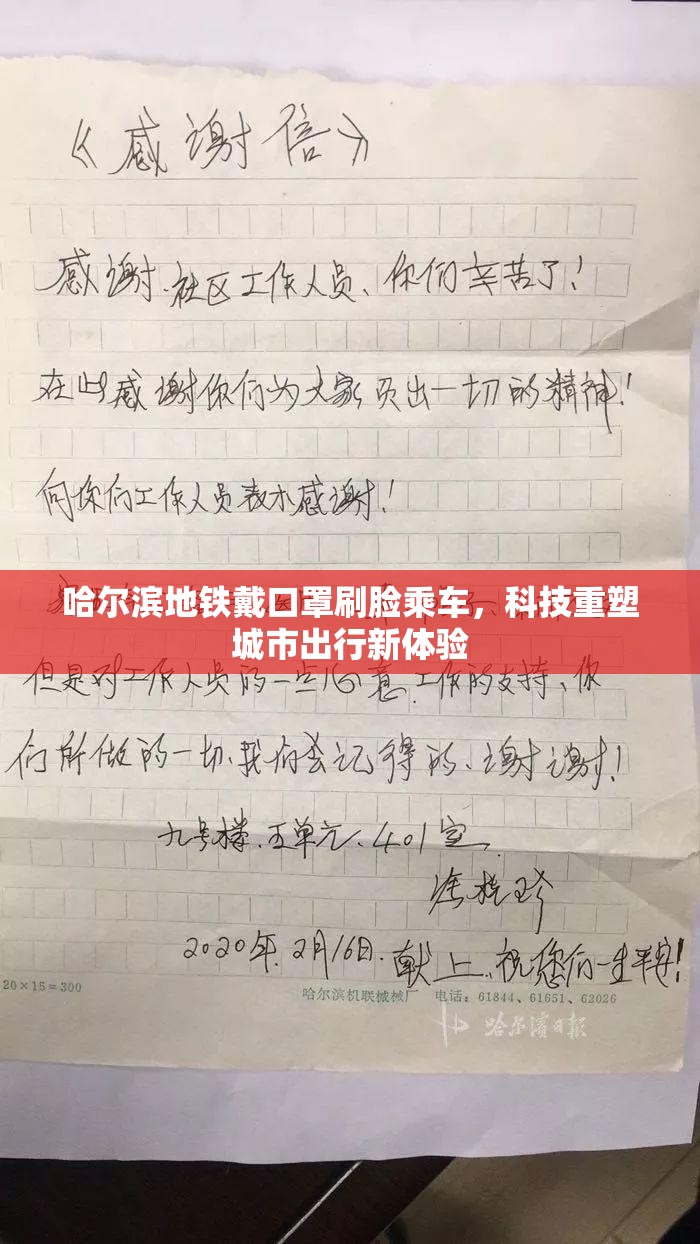 《感谢信》
感谢.社区工作人员、你们辛苦了!
在此感谢你们为大家负出一切的精神!
向你们工作人员表示感谢!
哈尔滨地铁戴口罩刷脸乘车，科技重塑
城市出行新体验
但是对工作人员的一点心意.工作的支持、你
们所做的一切、我们会记得的、谢谢!
九号楼、五单元、401室
2020年.2月16日.献上、祝您们一生平安!
20×15=300
哈尔滨机联械厂 电话：61844、61651、62026
哈尔滨日报